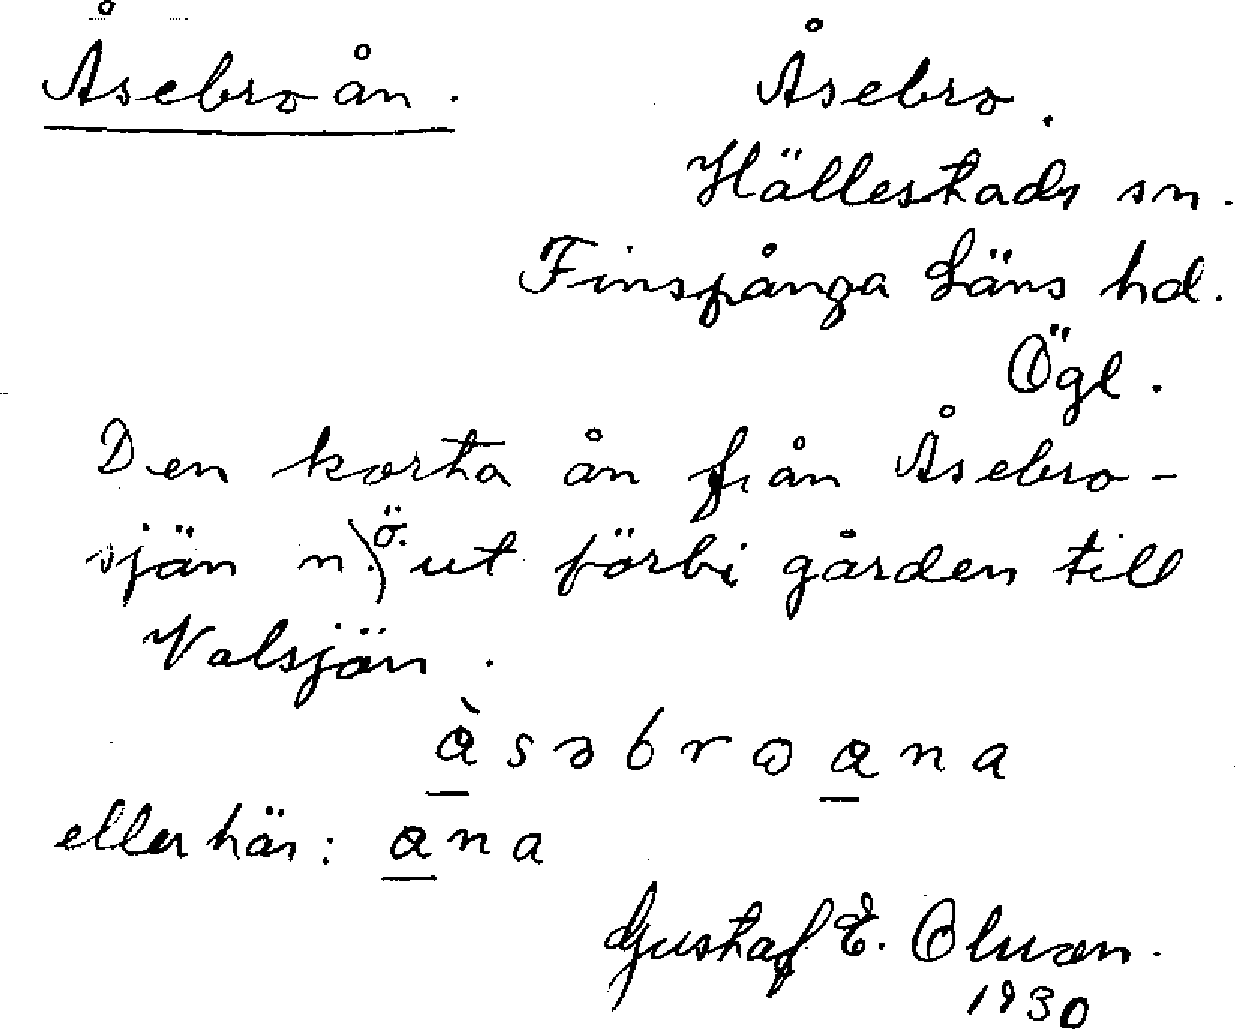 Åsebroån. Åsebro.
Hällestads sn.
Finspånga Läns hd.
Ögl.
Den korta ån från Åsebro-
sjön n.ö. ut förbi gården till
Valsjön.
åsəbroana
eller här: ana
Gustaf E. Olsson.
1930